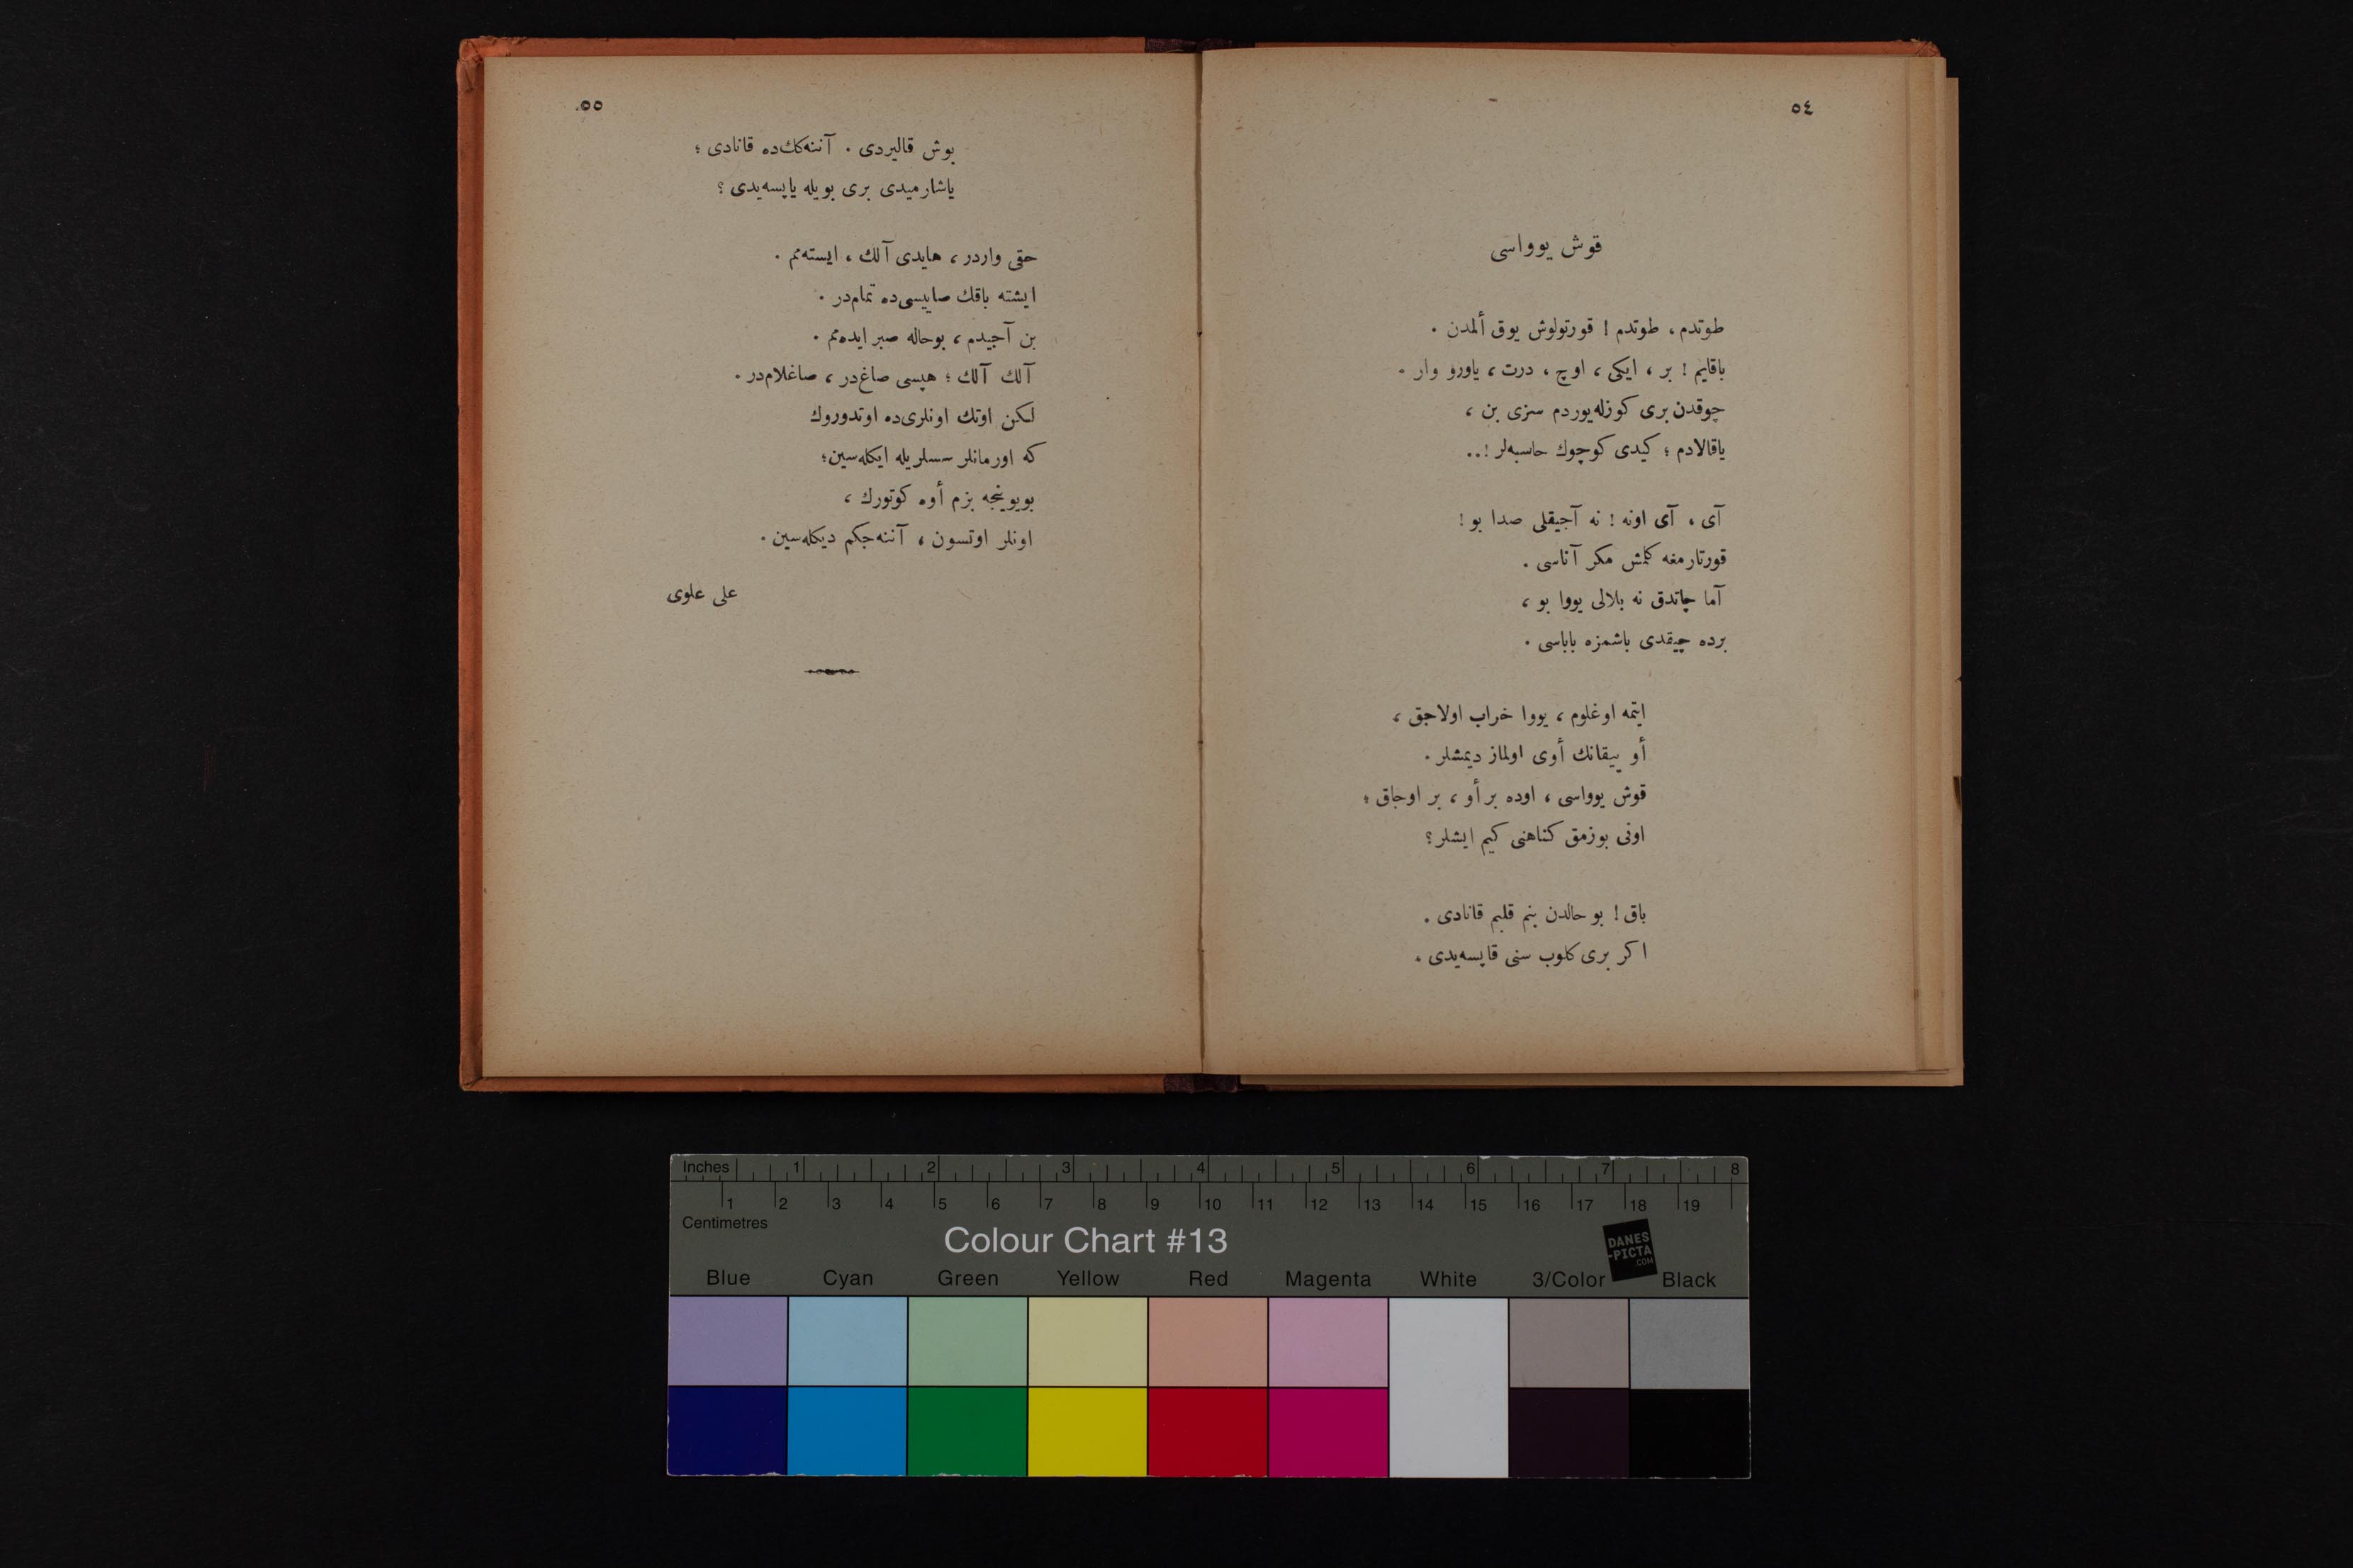 ٥٤
قوش يوواسی
طوتدم ، طوتدم ! قورتولوش يوق ألمدن .
باقايم ! بر ، ايكی ، اوچ ، درت ، ياورو وار .
چوقدن بری كوزله‌يوردم سزی بن ،
ياقالادم ؛ كيدی كوچوك حاسبه‌لر !..
آی ، آی اونه ! نه آجيقلی صدا بو !
قورتارمغه كلمش مكر آناسی .
آما چاتدق نه بلالی يووا بو ،
برده چيقدی باشمزه باباسی .
ايتمه اوغلوم ، يووا خراب اولاجق ،
أو ييقانك أوی اولماز ديمشلر .
قوش يوواسی ، اوده بر أو ، بر اوجاق ؛
اونی بوزمق كناهنی كيم ايشلر ؟
باق ! بو حالدن بنم قلبم قانادی .
اكر بری كلوب سنی قاپسه‌يدی ،
٥٥
بوش قاليردی . آننه‌كك‌ده قانادی ؛
ياشارميدی بری بويله ياپسه‌يدی ؟
حقی واردر ، هايدی آلك ، ايسته‌مم .
ايشته باقك صاييسی‌ده تمام‌در .
بن آجيدم ، بوحاله صبر ايده‌مم .
آلك آلك ؛ هپسی صاغ‌در ، صاغلام‌در .
لكن اوتك اونلری‌ده اوتدوروك
كه اورمانلر سسلريله ايكله‌سين ؛
بويوينجه بزم أوه كوتورك ،
اونلر اوتسون ، آننه‌جكم ديكله‌سين .
علی علوی
Inches 1 2 3 4 5 6 7 8
1 2 3 4 5 6 7 8 9 10 11 12 13 14 15 16 17 18 19
Centimetres
Colour Chart #13
DANES
-PICTA
.COM
Blue Cyan Green Yellow Red Magenta White 3/Color Black